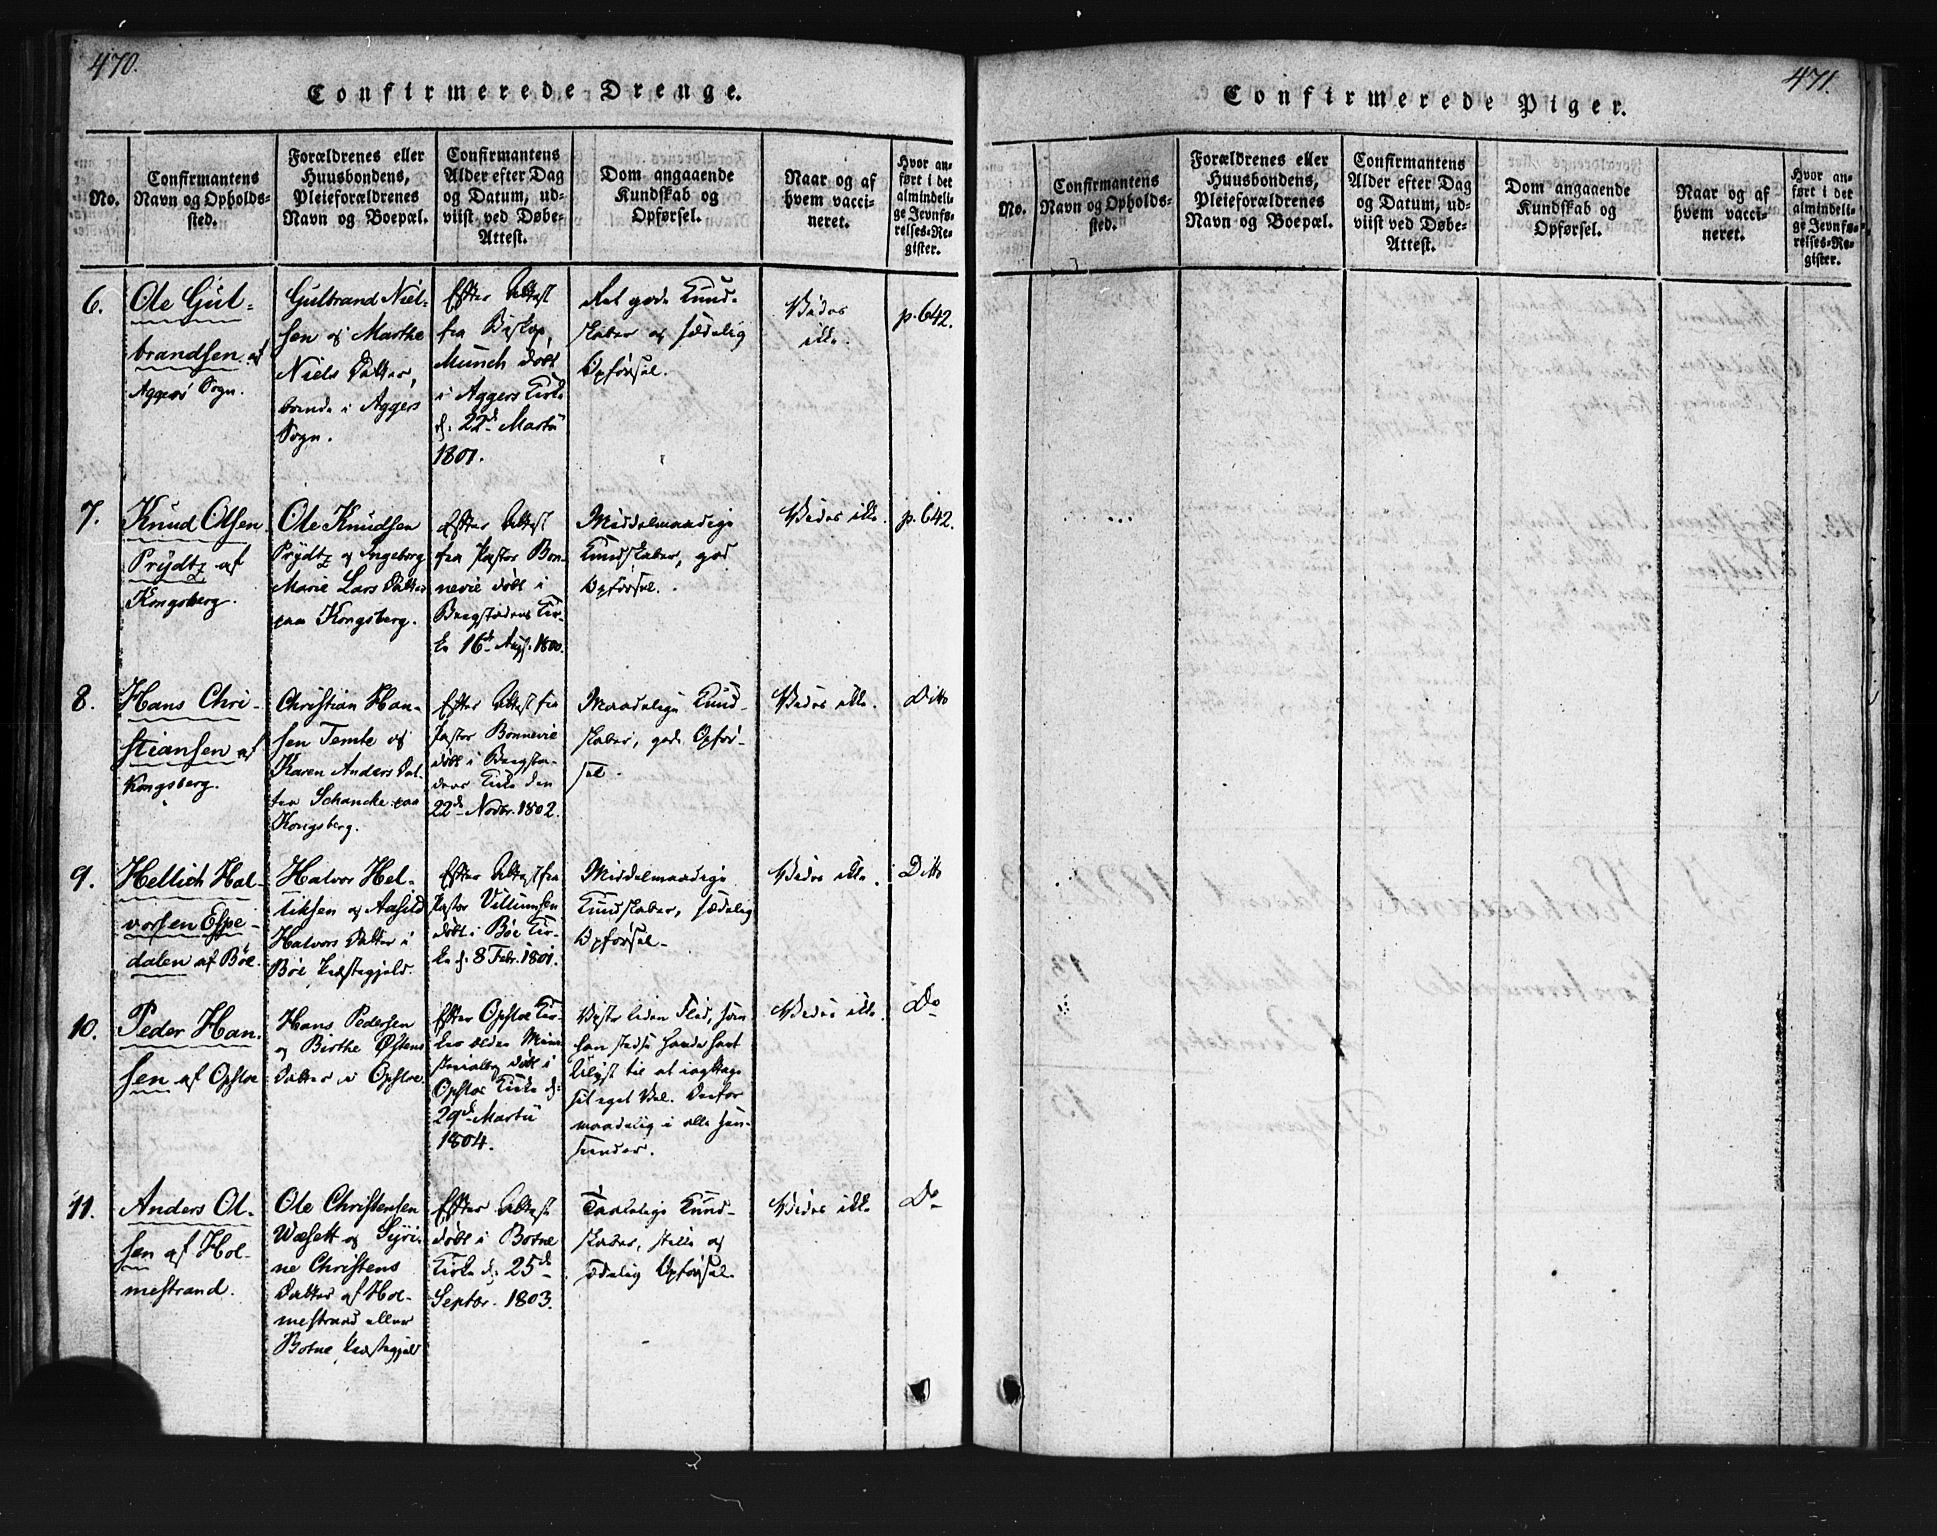 470.
Confirmerede Drenge.
No.
Confirmantens
Navn og Opholds-
sted.
Forældrenes eller
Huusbondens,
Pleieforældrenes
Navn og Boepæl.
Confirmantens
Alder efter Dag
og Datum, ud-
viist ved Døbe-
Attest.
Dom angaaende
Kundskab og
Opførsel.
Naar og af
hvem vacci-
neret.
Hvor an-
ført i det
almindeli-
ge Jevnfø-
relses-Re-
gister.
6.
Ole Gul-
brandsen af
Aggers Sogn.
Gulbrand Niel-
sen og Marthe
Niels Datter,
boende i Aggers
Sogn.
Efter Attest
fra Biskop
Munch døbt
i Aggers Kirke
d: 22de Martii
1801.
Ret gode Kund-
skaber og sædelig
Opførsel.
Vides
ikke.
p. 642.
7.
Knud Olsen
Prÿdtz af
Kongsberg.
Ole Knudsen
Prÿdtz og Ingeborg
Marie Lars Datter
paa Kongsberg.
Efter Attest
fra Pastor Bon-
nevie døbt i
Bergstadens Kir-
ke 16de Augs. 1800.
Middelmaadige
Kundskaber, god
Opførsel.
Vides ikke.
p. 642.
8.
Hans Chri-
stiansen af
Kongsberg.
Christian Han-
sen Temte og
Karen Anders Dat-
ter Schancke paa
Kongsberg.
Efter Attest fra
Pastor Bonnevie
døbt i Bergsta-
dens Kirke den
22de Novbr. 1802.
Maadelige Kund-
skaber, god Opfør-
sel.
Vides ikke.
Ditto
9.
Hellich Hal-
vorsen Espe-
dalen af Bøe.
Halvor Hel-
liksen og Aasild
Halvors Datter i
Bøe Præstegjeld.
Efter Attest fra
Pastor Villumsen
døbt i Bøe Kir-
ke d: 8 Febr. 1801.
Middelmaadige
Kundskaber, sædelig
Opførsel.
Vides ikke.
Ditto
10.
Peder Han-
sen af Opsloe
Hans Pedersen
og Birthe Østens
Datter i Opsloe.
Efter Opsloe Kir-
kes ældre Mini-
sterialbog døbt i
Opsloe Kirke d:
29de Martii
1804.
Viste liden Flid, som
han stedse havde havt
Ulyst til at iagttage
sit eget Vel. Derfor
maadelig i alle Hen-
seender.
Vides ikke.
Do
11.
Anders Ol-
sen af Hol-
mestrand.
Ole Christensen
Wæsett og Syri-
ne Christens
Datter af Hol-
mestrand eller
Botne Præstegjeld
Efter Attest
døbt i Botne
Kirke d: 25de
Septbr. 1803.
Taalelige Kund-
skaber, stille og
sædelig Opførsel.
Vides ikke
Do
471.
Confirmerede Piger.
No.
Confirmantens
Navn og Opholds-
sted.
Forældrenes eller
Huusbondens,
Pleieforældrenes
Navn og Boepæl.
Confirmantens
Alder efter Dag
og Datum, ud-
viist ved Døbe-
Attest.
Dom angaaende
Kundskab og
Opførsel.
Naar og af
hvem vacci-
neret.
Hvor an-
ført i det
almindeli-
ge Jevnfø-
relses-Re-
gister.